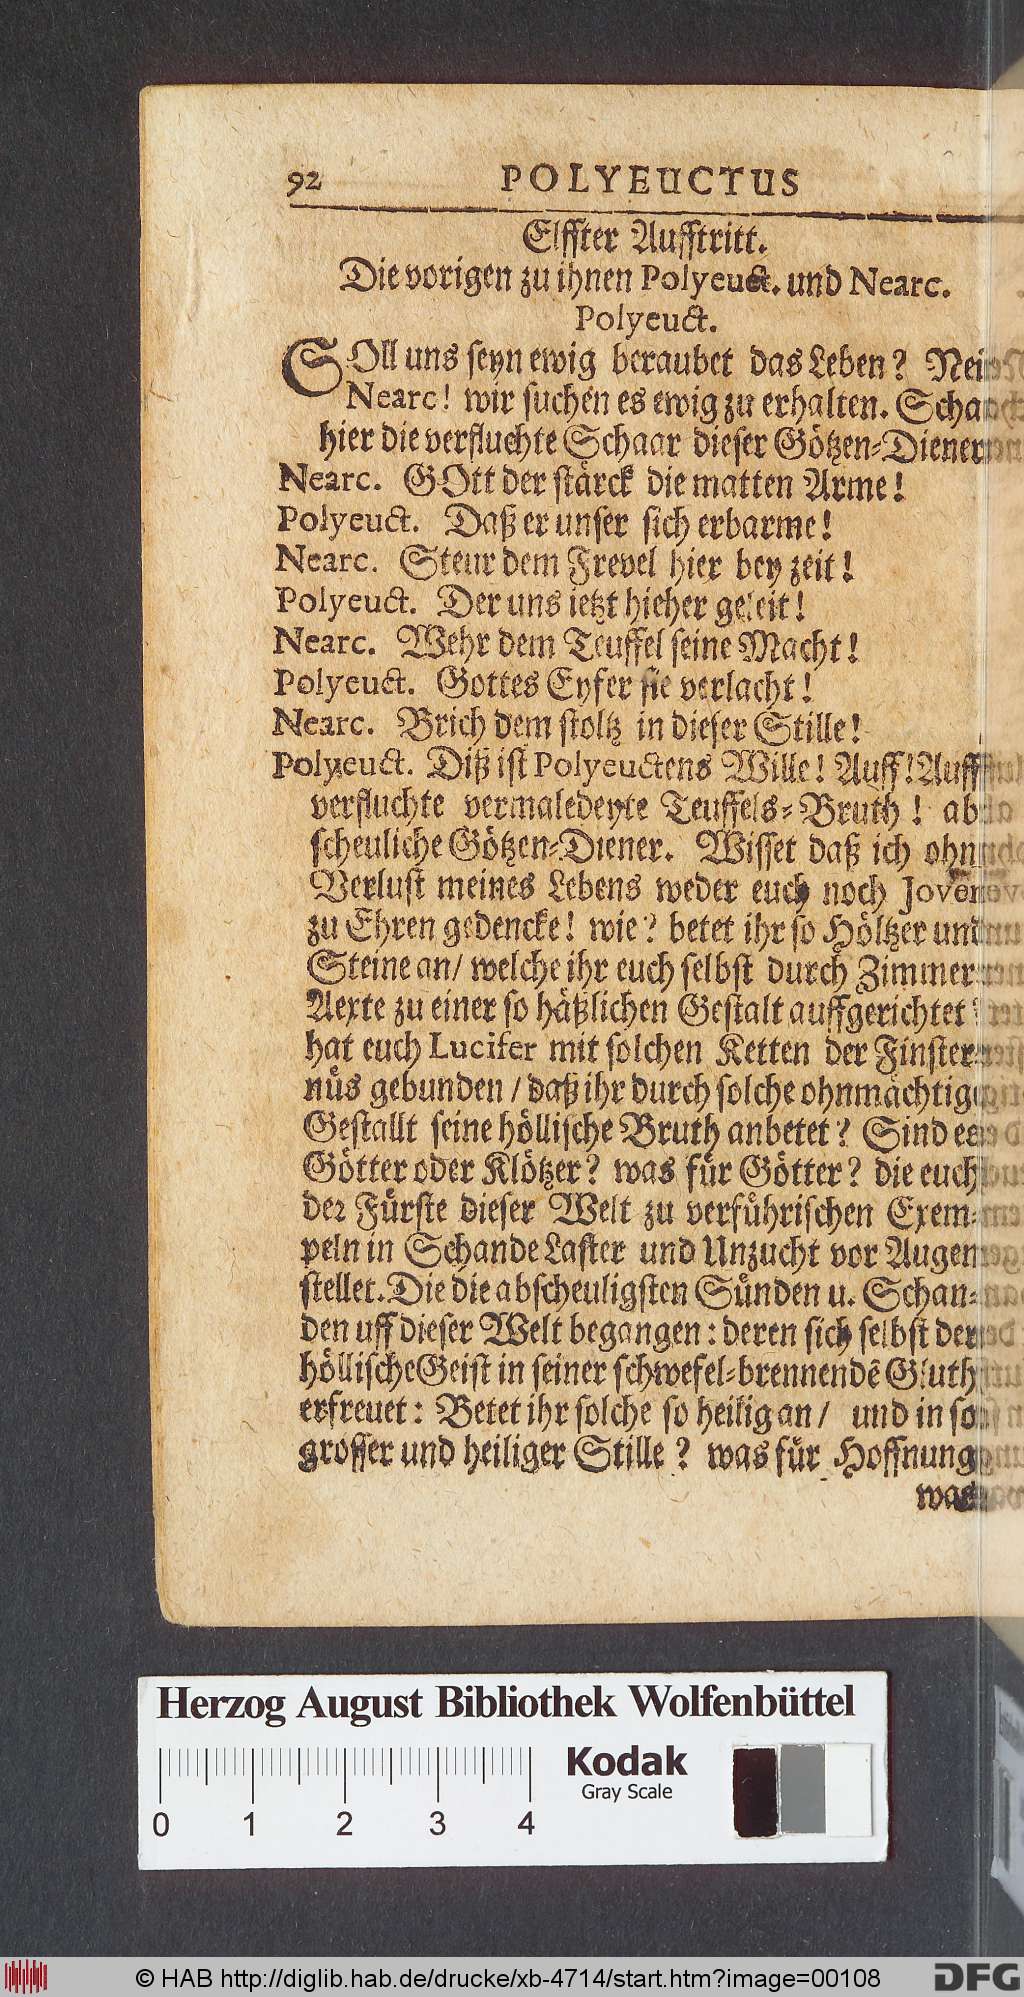 92 POLYEUCTUS
Elffter Aufftritt.
Die vorigen zu ihnen Polyeuct. und Nearc.
Polyeuct.
SOll uns seyn ewig beraubet das Leben? Nein
Nearc! wir suchen es ewig zu erhalten. Schau
hier die verfluchte Schaar dieser Götzen-Diener
Nearc. GOtt der stärck die matten Arme!
Polyeuct. Daß er unser sich erbarme!
Nearc. Steur dem Frevel hier bey zeit!
Polyeuct. Der uns ietzt hieher geleit!
Nearc. Wehr dem Teuffel seine Macht!
Polyeuct. Gottes Eyfer sie verlacht!
Nearc. Brich dem stoltz in dieser Stille!
Polyeuct. Diß ist Polyeuctens Wille! Auff! Auff
verfluchte vermaledeyte Teuffels-Bruth! ab-
scheuliche Götzen-Diener. Wisset daß ich ohn
Verlust meines Lebens weder euch noch Joven
zu Ehren gedencke! wie? betet ihr so Höltzer und
Steine an/ welche ihr euch selbst durch Zimmer-
Aexte zu einer so häßlichen Gestalt auffgerichtet?
hat euch Lucifer mit solchen Ketten der Finster-
nüs gebunden / daß ihr durch solche ohnmächtige
Gestallt seine höllische Bruth anbetet? Sind es
Götter oder Klötzer? was für Götter? die euch
der Fürste dieser Welt zu verführischen Exem-
peln in Schande Laster und Unzucht vor Augen
stellet. Die die abscheuligsten Sünden u. Schan-
den uff dieser Welt begangen: deren sich selbst der
höllische Geist in seiner schwefel-brennendē Gluth
erfreuet: Betet ihr solche so heilig an/ und in so
grosser und heiliger Stille? was für Hoffnung
was
Herzog August Bibliothek Wolfenbüttel
Kodak
Gray Scale
0 1 2 3 4
© HAB http://diglib.hab.de/drucke/xb-4714/start.htm?image=00108
DFG